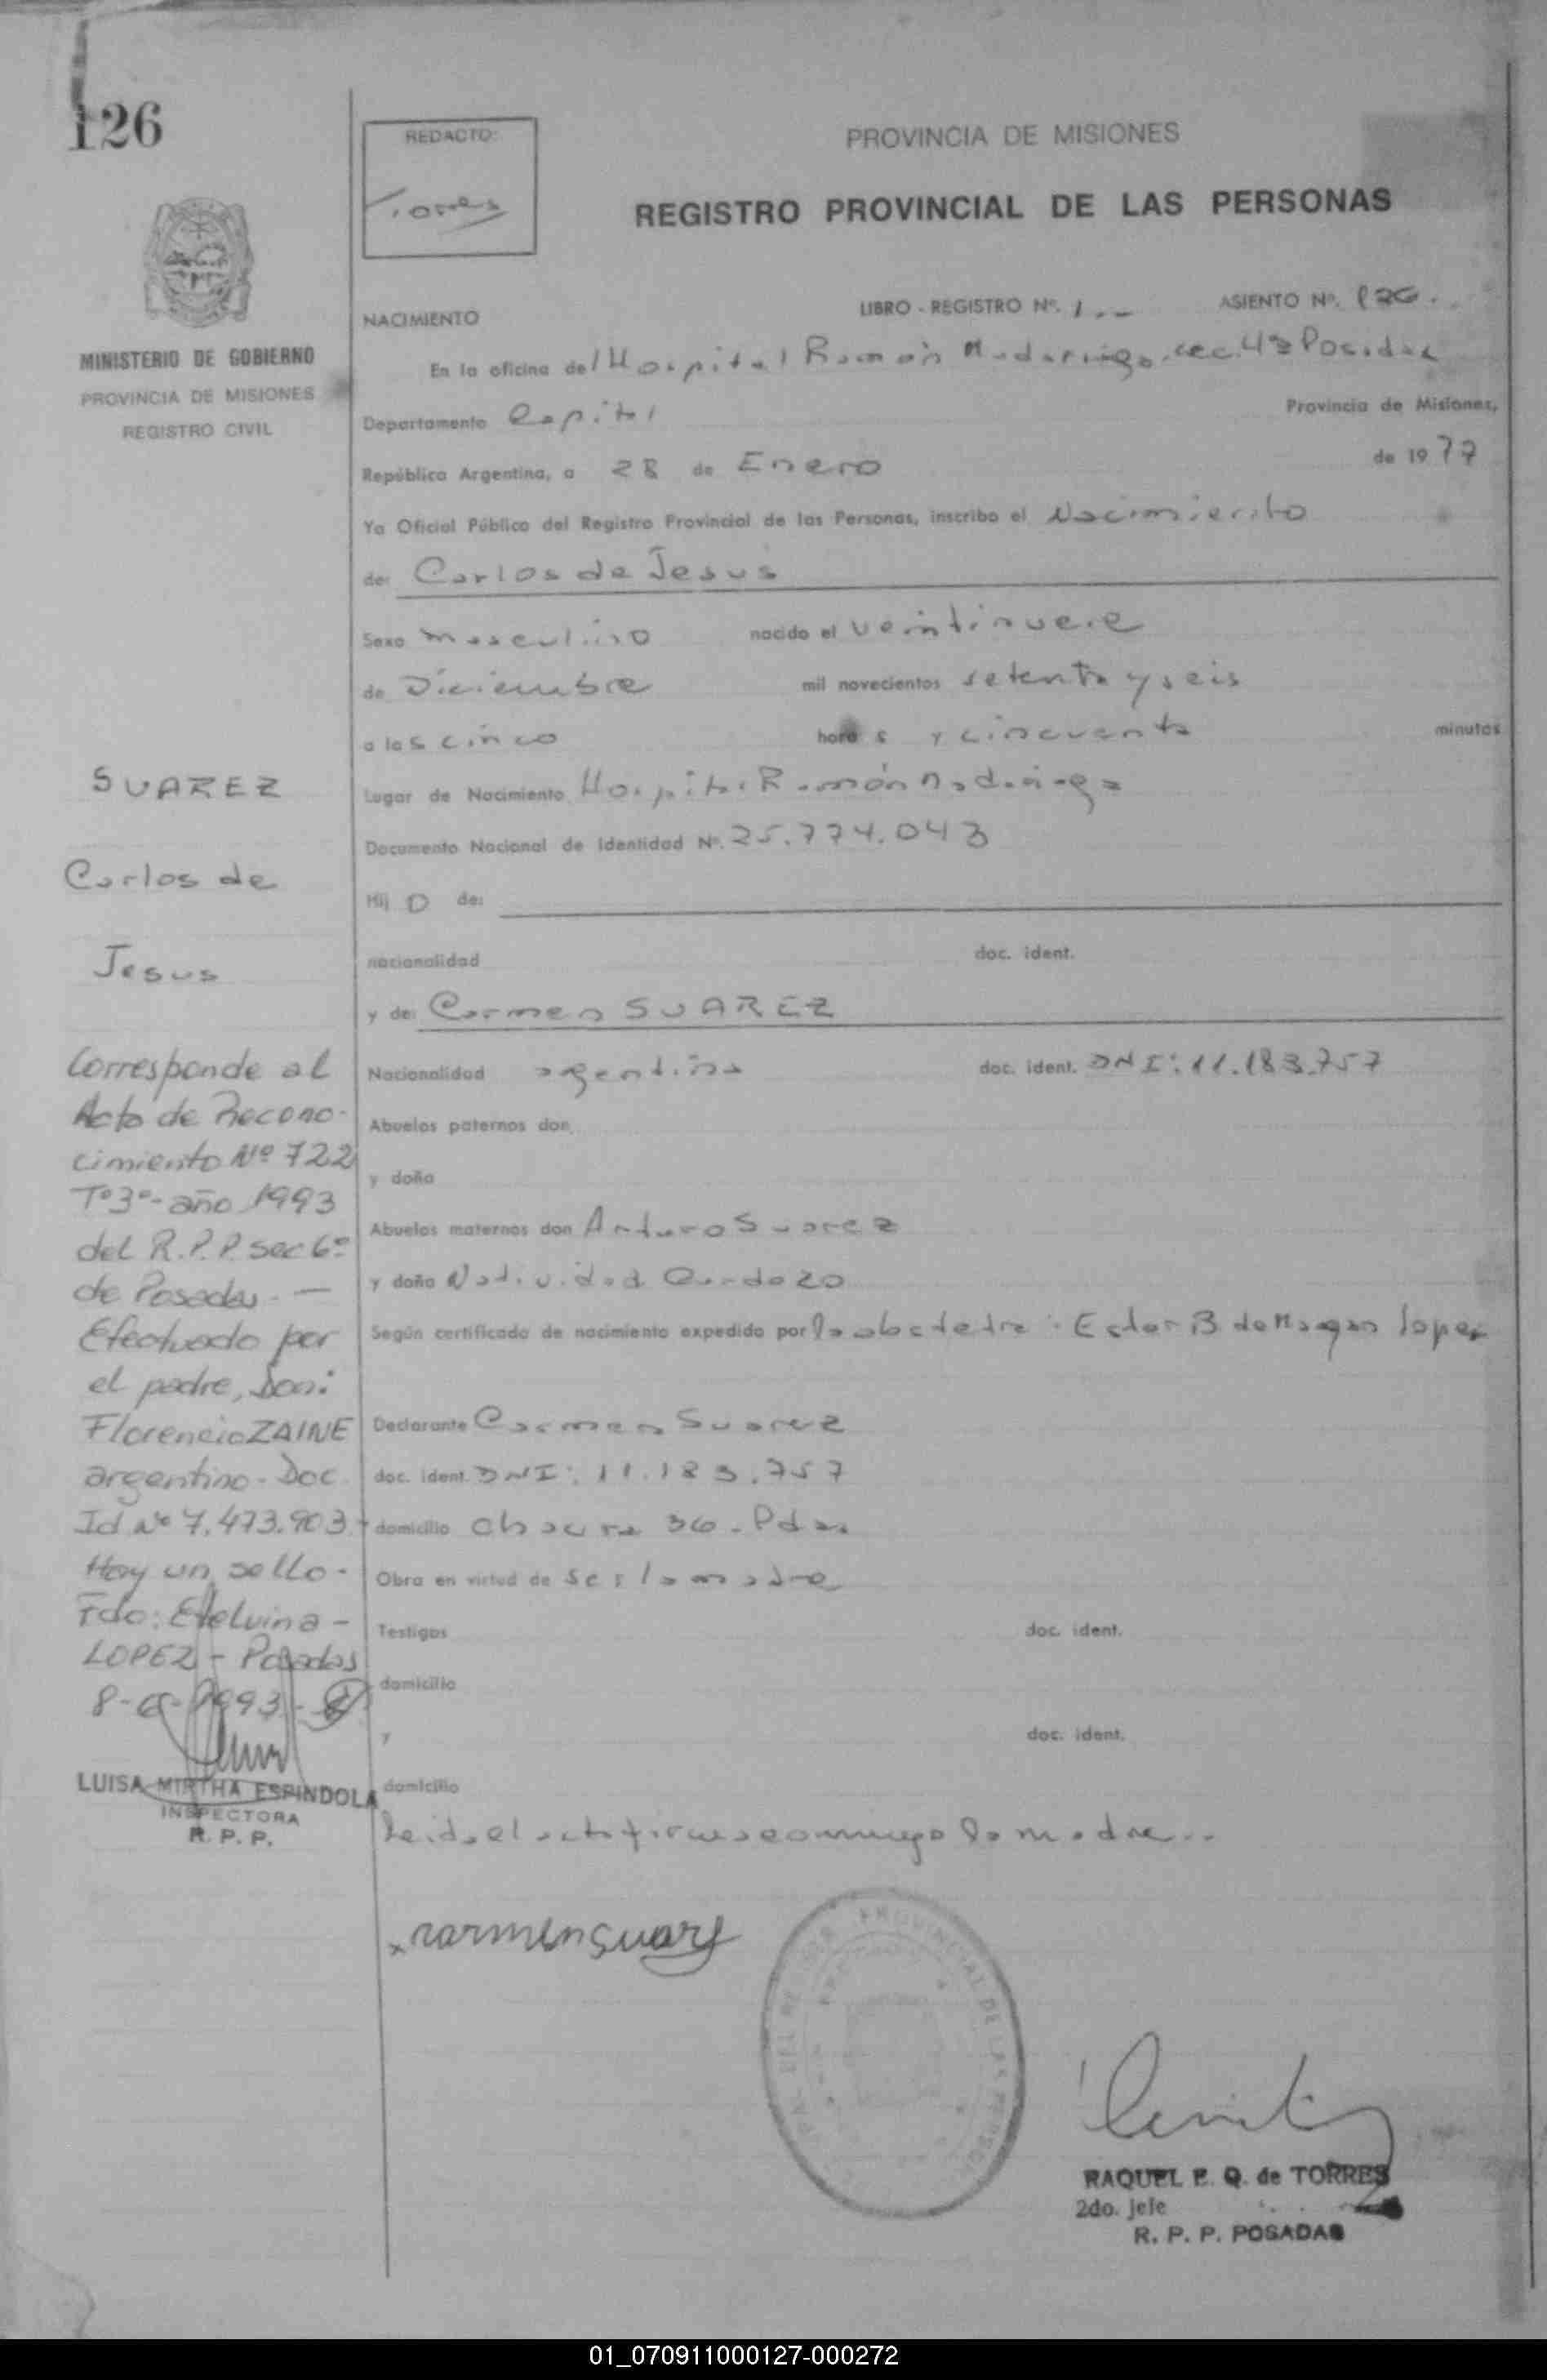 126
REDACTO:
Torres
PROVINCIA DE MISIONES
REGISTRO PROVINCIAL DE LAS PERSONAS
MINISTERIO DE GOBIERNO
PROVINCIA DE MISIONES
REGISTRO CIVIL
NACIMIENTO
LIBRO - REGISTRO Nº. 1.--
ASIENTO Nº. 126.
En la oficina del Hospital Ramón Madariaga sec. 4ª Posadas
Departamento Capital
Provincia de Misiones,
República Argentina, a 28 de Enero de 1977
Yo Oficial Público del Registro Provincial de las Personas, inscribo el Nacimiento
de: Carlos de Jesus
Sexo masculino nacido el veintinueve
de Diciembre mil novecientos setenta y seis
a las cinco horas y cincuenta minutos
Lugar de Nacimiento Hospital Ramón Madariaga
Documento Nacional de Identidad Nº. 25.774.043
Hij o de:
nacionalidad doc. ident.
y de: Carmen SUAREZ
Nacionalidad argentina doc. ident. DNI: 11.183.757
Abuelos paternos don
y doña
Abuelos maternos don Arturo Suarez
y doña Natividad Cardozo
Según certificado de nacimiento expedido por la obstetra: Ester B de lopez
Declarante Carmen Suarez
doc. ident. DNI: 11.183.757
domicilio 36 - Pdas.
Obra en virtud de ser la madre
Testigos doc. ident.
domicilio
y doc. ident.
domicilio
Leida el acta firma conmigo la madre..
SUAREZ
Carlos de
Jesus
Corresponde al
Acta de Recono-
cimiento Nº 722
Tº3º- año 1993
del R.P.P. sec 6ª
de Posadas. —
Efectuado por
el padre, Don:
Florencio ZAINE
argentino - Doc
Id Nº 7.473.903 -
Hay un sello -
Fdo: Etelvina -
LOPEZ - Posadas
8- -1993 -
LUISA MIRTHA ESPINDOLA
INSPECTORA
R. P. P.
x carmen suarez
PROVINCIAL DE LAS
RAQUEL E. Q. de TORRES
2do. Jefe
R. P. P. POSADAS
01_070911000127-000272